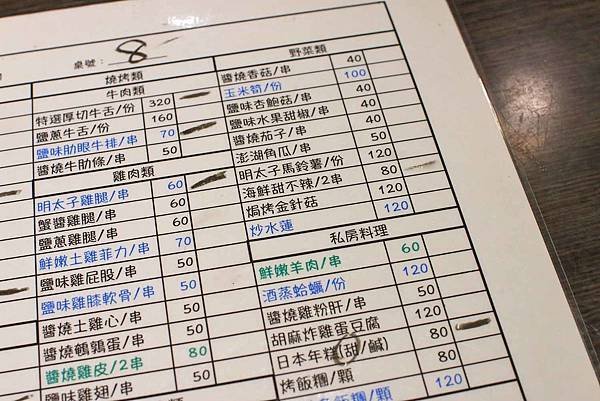 桌號： 8
燒烤類
牛肉類
特選厚切牛舌/份 320
鹽蔥牛舌/份 160
鹽味肋眼牛排/串 70
醬燒牛肋條/串 50
雞肉類
明太子雞腿/串 60
蟹醬雞腿/串 60
鹽蔥雞腿/串 60
鮮嫩土雞菲力/串 70
鹽味雞屁股/串 50
鹽味雞膝軟骨/串 50
醬燒土雞心/串 50
醬燒鵪鶉蛋/串 50
醬燒雞皮/2串 80
鹽味雞翅/串 50
野菜類
醬燒香菇/串 40
玉米筍/份 100
鹽味杏鮑菇/串 40
鹽味水果甜椒/串 40
醬燒茄子/串 50
澎湖角瓜/串 50
明太子馬鈴薯/份 120
海鮮甜不辣/2串 80
焗烤金針菇 120
炒水蓮 120
私房料理
鮮嫩羊肉/串 60
酒蒸蛤蠣/份 120
醬燒雞粉肝/串 50
胡麻炸雞蛋豆腐 120
日本年糕(甜/鹹) 80
烤飯糰/顆 80
飯糰/顆 120